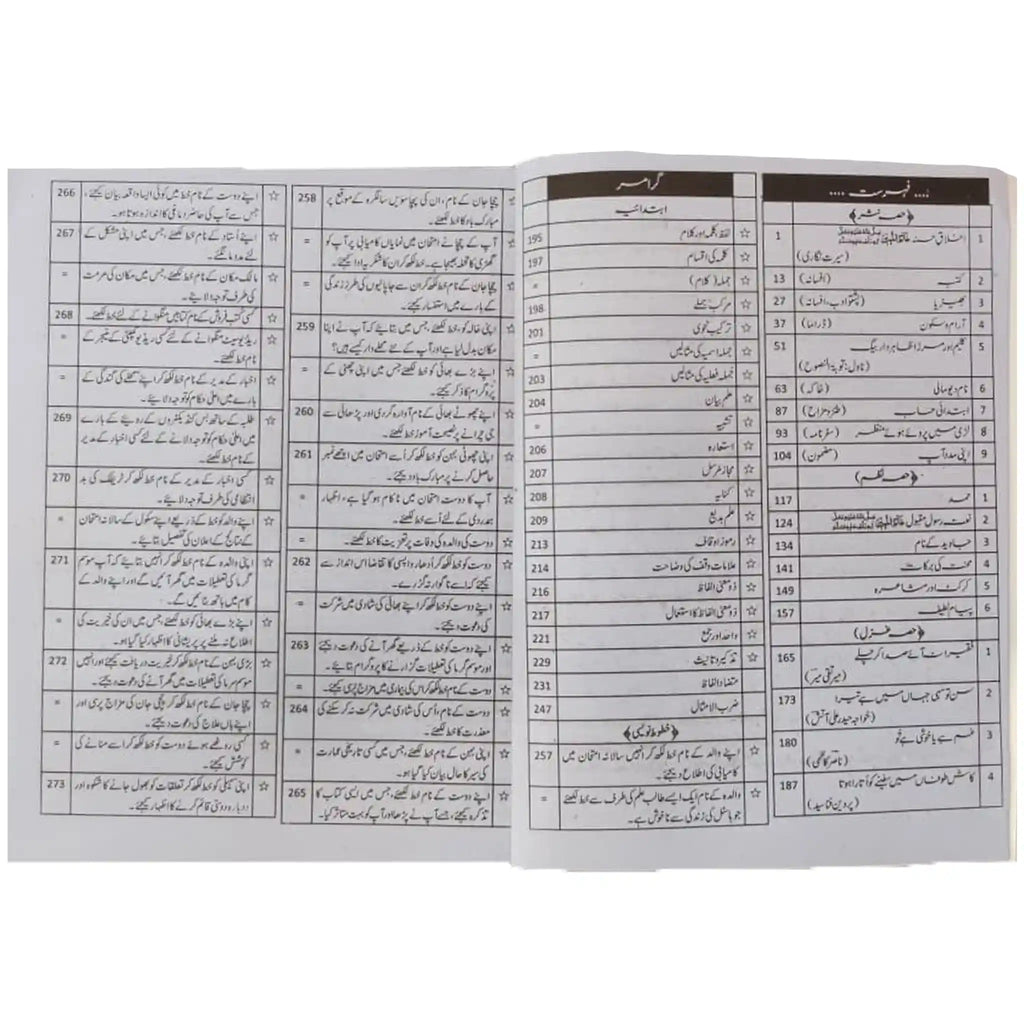 .... فہرست ....
﴿حصہ نثر﴾
1 اخلاق حسنہ 1
(سیرت نگاری)
2 کتبہ (افسانہ) 13
3 بھیڑیا (پشتو ادب، افسانہ) 27
4 آرام و سکون (ڈراما) 37
5 کلیم اور مرزا ظاہر دار بیگ 51
(ناول: توبۃ النصوح)
6 نام دیو مالی (خاکہ) 63
7 ابتدائی حساب (طنز و مزاح) 87
8 لڑی میں پروئے ہوئے منظر (سفرنامہ) 93
9 اپنی مدد آپ (مضمون) 104
﴿حصہ نظم﴾
1 حمد 117
2 نعت رسول مقبول 124
3 جاوید کے نام 134
4 محنت کی برکات 141
5 کرکٹ اور مشاعرہ 149
6 پیام لطیف 157
﴿حصہ غزل﴾
1 فقیرانہ آئے صدا کر چلے 165
(میر تقی میر)
2 سن تو سہی جہاں میں ہے تیرا 173
(خواجہ حیدر علی آتش)
3 غم ہے یا خوشی ہے تُو 180
(ناصر کاظمی)
4 کاش طوفاں میں سفینے کو اتارا ہوتا 187
(پروین فنا سید)
گرامر
ابتدائیہ
☆ لفظ، کلمہ اور کلام 195
☆ کلمہ کی اقسام 197
☆ جملہ (کلام) =
☆ مرکب جملے 198
☆ ترکیب نحوی 201
☆ جملہ اسمیہ کی مثالیں =
☆ جملہ فعلیہ کی مثالیں 203
☆ علم بیان 204
☆ تشبیہ =
☆ استعارہ 206
☆ مجاز مرسل 207
☆ کنایہ 208
☆ علم بدیع 209
☆ رموز اوقاف 213
☆ علامات وقف کی وضاحت 214
☆ ذومعنی الفاظ 216
☆ ذومعنی الفاظ کا استعمال 217
☆ واحد اور جمع 221
☆ تذکیر و تانیث 229
☆ متضاد الفاظ 231
☆ ضرب الامثال 247
﴿خطوط نویسی﴾
☆ اپنے والد کے نام خط لکھ کر انہیں سالانہ امتحان میں 257
کامیابی کی اطلاع دیجئے۔
☆ والدہ کے نام ایک ایسے طالب علم کی طرف سے خط لکھئے =
جو ہاسٹل کی زندگی سے ناخوش ہے۔
☆ چچا جان کے نام، ان کی پچاسویں سالگرہ کے موقع پر 258
مبارک باد کا خط لکھئے۔
☆ آپ کے چچا نے امتحان میں نمایاں کامیابی پر آپ کو =
گھڑی کا تحفہ بھیجا ہے۔ خط لکھ کر ان کا شکریہ ادا کیجئے۔
☆ چچا جان کے نام خط لکھ کر ان سے جاپانیوں کی طرز زندگی =
کے بارے میں استفسار کیجئے۔
☆ اپنی خالہ کو، خط لکھئے، جس میں بتایئے کہ آپ نے اپنا 259
مکان بدل لیا ہے اور آپ کے نئے محلے دار کیسے ہیں؟
☆ اپنے بڑے بھائی کو خط لکھئے جس میں اپنی چھٹی کے =
پروگرام کا ذکر کیجئے۔
☆ اپنے چھوٹے بھائی کے نام آوارہ گردی اور پڑھائی سے 260
جی چرانے پر نصیحت آموز خط لکھئے۔
☆ اپنی چھوٹی بہن کو خط لکھ کر اُسے امتحان میں اچھے نمبر 261
حاصل کرنے پر مبارک باد دیجئے۔
☆ آپ کا دوست امتحان میں ناکام ہو گیا ہے، اظہار =
ہمدردی کے لئے اُسے خط لکھئے۔
☆ دوست کی والدہ کی وفات پر تعزیت کا خط لکھئے۔ =
☆ دوست کو خط لکھ کر اُدھار واپسی کا تقاضا اس انداز سے 262
کیجئے کہ اسے ناگوار نہ گزرے۔
☆ اپنے دوست کو خط لکھ کر اپنے بھائی کی شادی میں شرکت =
کی دعوت دیجئے۔
☆ اپنے دوست کو خط کے ذریعے گھر آنے کی دعوت دیجئے 263
اور موسم گرما کی تعطیلات گزارنے کا پروگرام بتایئے۔
☆ اپنے دوست کے نام خط لکھ کر اس کی بیماری میں مزاج پرسی کیجئے۔ =
☆ دوست کے نام، اُس کی شادی میں شرکت نہ کر سکنے کی 264
معذرت کا خط لکھئے۔
☆ اپنی بہن کے نام خط لکھئے، جس میں کسی تاریخی عمارت =
کی سیر کا حال بیان کیا گیا ہو۔
☆ اپنے دوست کے نام خط لکھئے، جس میں ایسی کتاب کا 265
تذکرہ کیجئے، جسے آپ نے پڑھا اور آپ کو بہت متاثر کیا۔
☆ اپنے دوست کے نام خط میں کوئی ایسا واقعہ بیان کیجئے، 266
جس سے آپ کی حاضر دماغی کا اندازہ ہوتا ہو۔
☆ اپنے اُستاد کے نام خط لکھئے، جس میں اپنی مشکل کے 267
لئے مدد مانگئے۔
☆ مالک مکان کے نام خط لکھئے، جس میں مکان کی مرمت =
کی طرف توجہ دلایئے۔
☆ کسی کتب فروش کے نام کتابیں منگوانے کے لئے خط لکھئے۔ 268
☆ ریڈیو سیٹ منگوانے کے لئے کسی ریڈیو کمپنی کے منیجر کے =
نام خط لکھئے۔
☆ اخبار کے مدیر کے نام خط لکھ کر اپنے محلے کی گندگی کے =
بارے میں اعلیٰ حکام کو توجہ دلایئے۔
☆ طلبہ کے ساتھ بس کنڈیکٹروں کے رویئے کے بارے 269
میں اعلیٰ حکام کو توجہ دلانے کے لئے کسی اخبار کے مدیر
کے نام خط لکھئے۔
☆ کسی اخبار کے مدیر کے نام خط لکھ کر ٹریفک کی بد 270
انتظامی کی طرف توجہ دلایئے۔
☆ اپنے والد کو خط کے ذریعے اپنے سکول کے سالانہ امتحان =
کے نتائج کے اعلان کی تفصیل بتایئے۔
☆ اپنی والدہ کے نام خط لکھ کر انہیں بتایئے کہ آپ موسم 271
گرما کی تعطیلات میں گھر آئیں گے اور اپنے والد کے
کام میں ہاتھ بٹائیں گے۔
☆ اپنے بڑے بھائی کو خط لکھئے، جس میں ان کی خیریت کی =
اطلاع نہ ملنے پر پریشانی کا اظہار کیا گیا ہو۔
☆ بڑی بہن کے نام خط لکھ کر خیریت دریافت کیجئے اور انہیں 272
موسم سرما کی تعطیلات میں گھر آنے کی دعوت دیجئے۔
☆ چچا جان کے نام خط لکھ کر چچی جان کی مزاج پرسی اور =
اپنے ہاں علاج کی دعوت دیجئے۔
☆ کسی روٹھے ہوئے دوست کو خط لکھ کر اسے منانے کی =
کوشش کیجئے۔
☆ کسی سہیلی کو خط لکھ کر تعلقات کو بھول جانے کا شکوہ اور 273
دوبارہ دوستی قائم کرنے کا اظہار کیجئے۔